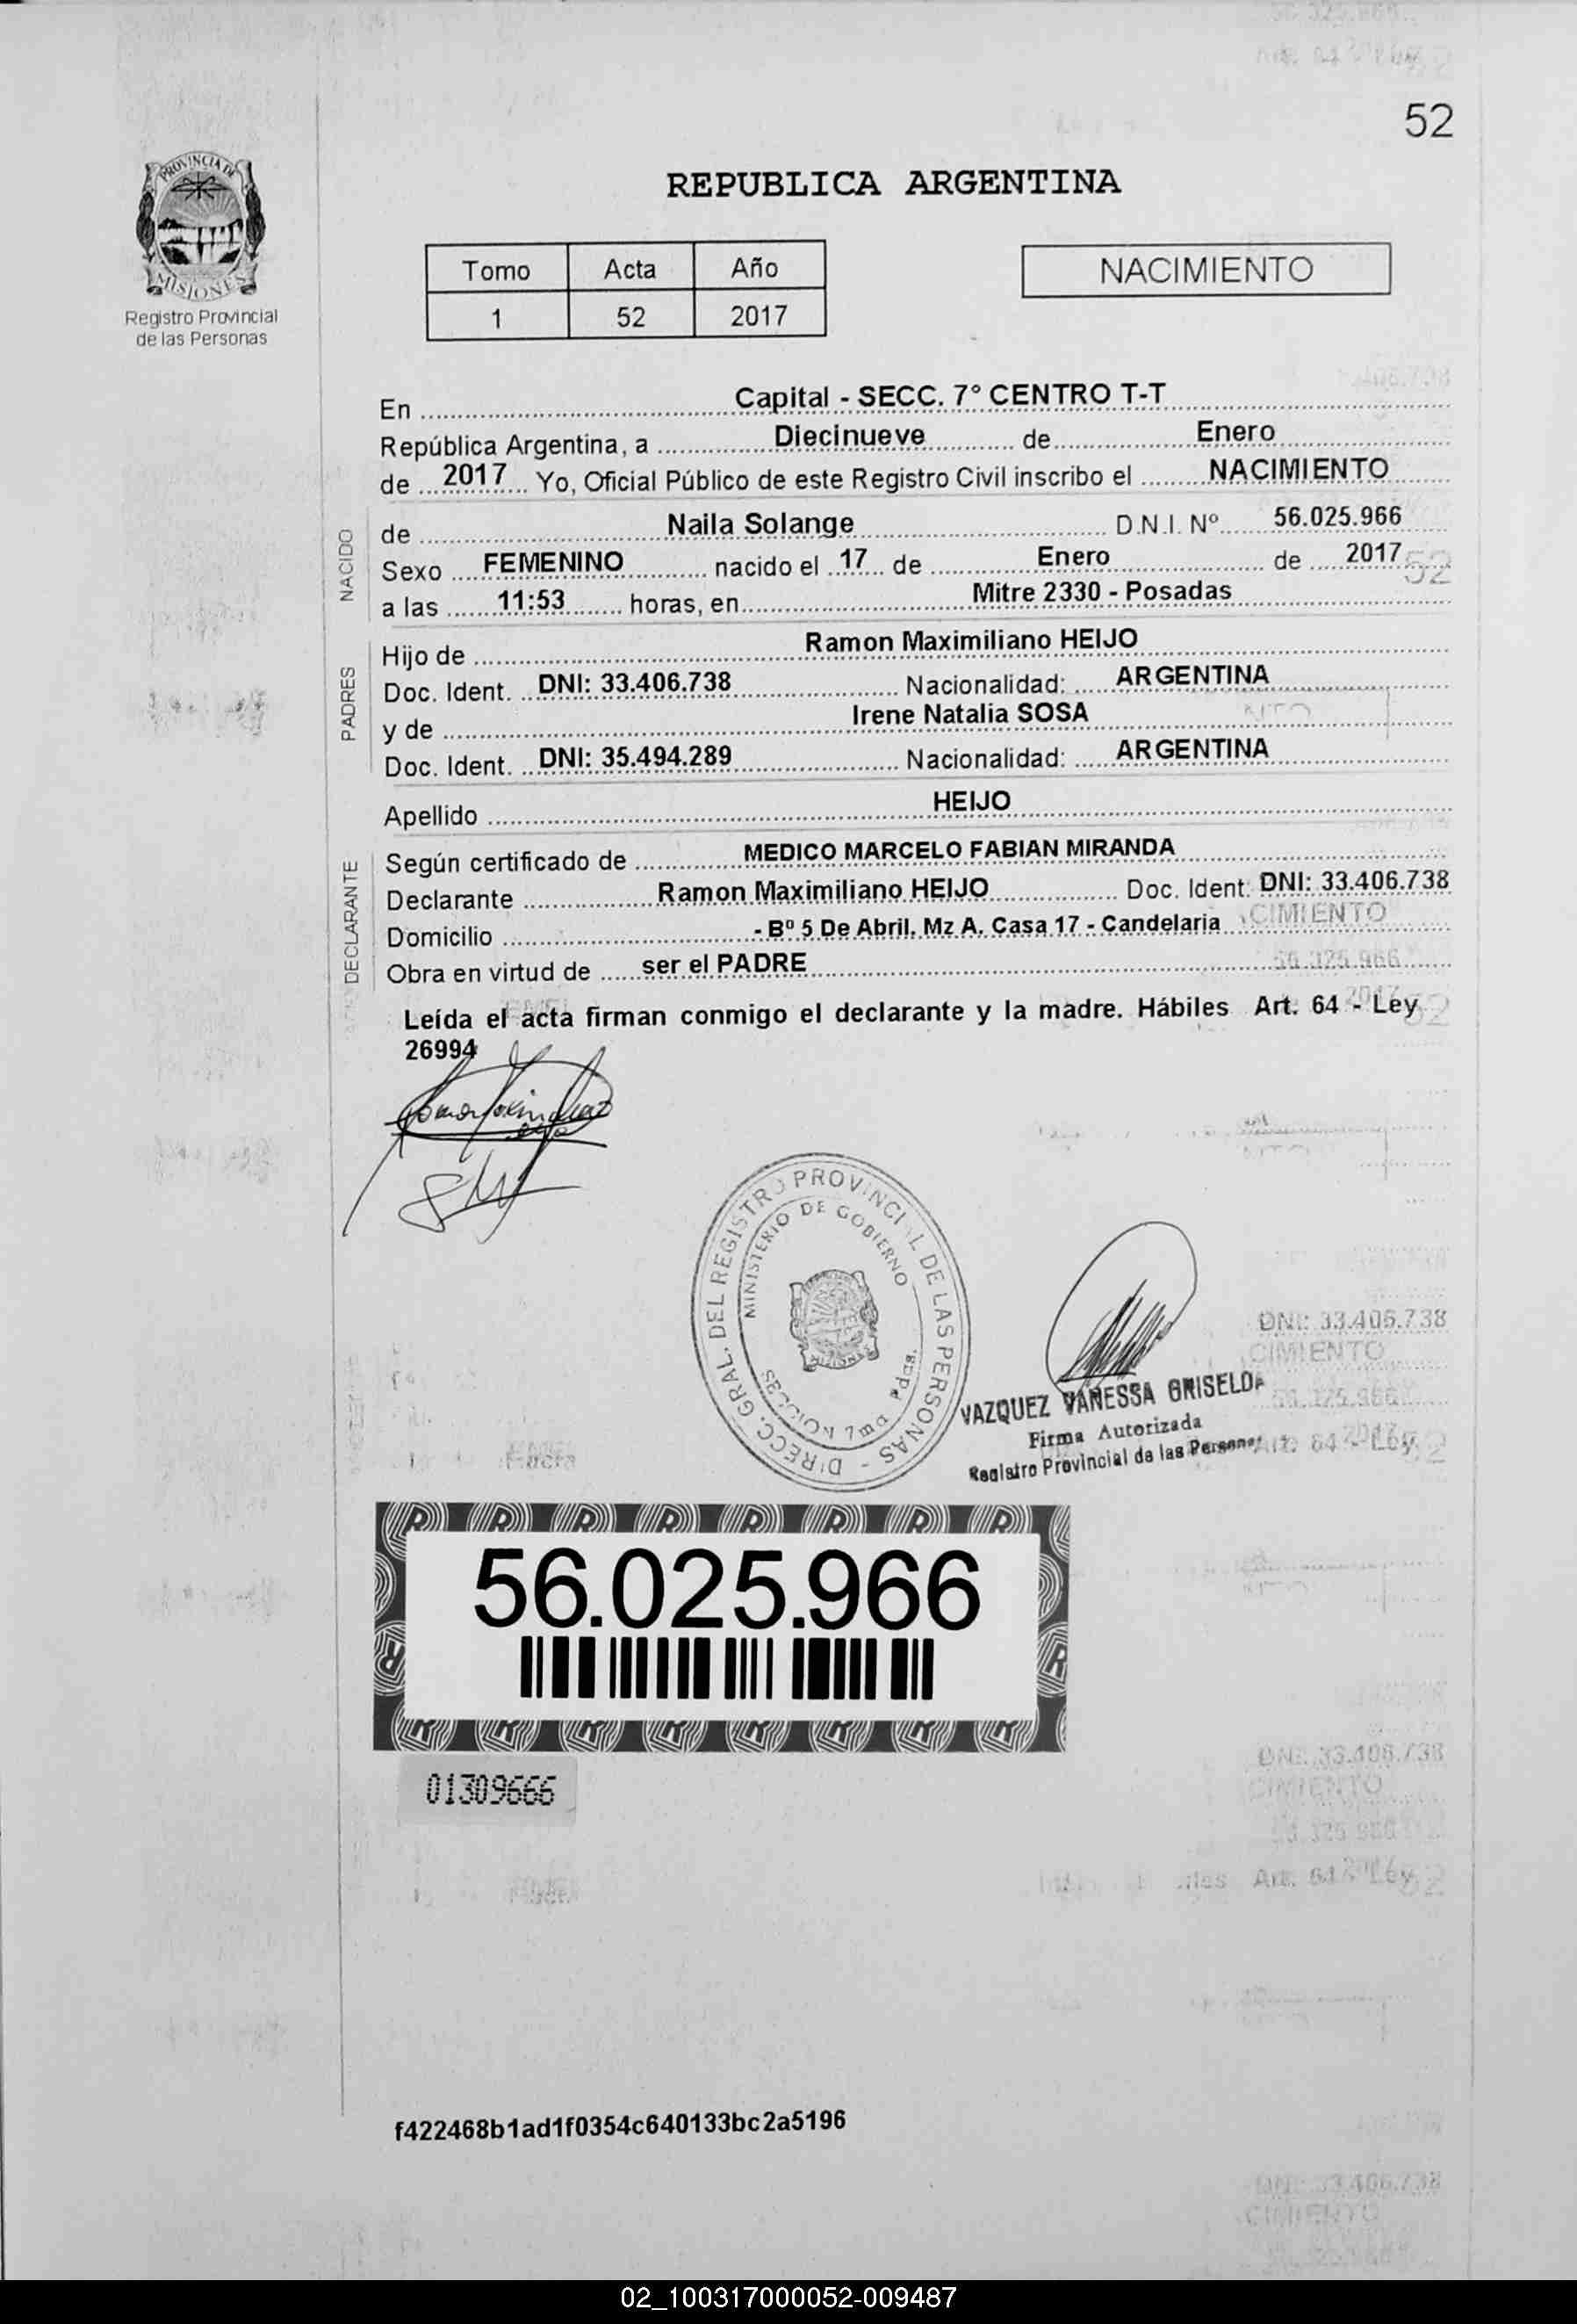 52
PROVINCIA DE
MISIONES
Registro Provincial
de las Personas
REPUBLICA ARGENTINA
Tomo Acta Año
1 52 2017
NACIMIENTO
En Capital - SECC. 7° CENTRO T-T
República Argentina, a Diecinueve de Enero
de 2017 Yo, Oficial Público de este Registro Civil inscribo el NACIMIENTO
NACIDO
de Naila Solange D.N.I. Nº 56.025.966
Sexo FEMENINO nacido el 17 de Enero de 2017
a las 11:53 horas, en Mitre 2330 - Posadas
PADRES
Hijo de Ramon Maximiliano HEIJO
Doc. Ident. DNI: 33.406.738 Nacionalidad: ARGENTINA
y de Irene Natalia SOSA
Doc. Ident. DNI: 35.494.289 Nacionalidad: ARGENTINA
Apellido HEIJO
DECLARANTE
Según certificado de MEDICO MARCELO FABIAN MIRANDA
Declarante Ramon Maximiliano HEIJO Doc. Ident. DNI: 33.406.738
Domicilio - Bº 5 De Abril, Mz A, Casa 17 - Candelaria
Obra en virtud de ser el PADRE
Leída el acta firman conmigo el declarante y la madre. Hábiles Art. 64 - Ley
26994
DIRECC. GRAL. DEL REGISTRO PROVINCIAL DE LAS PERSONAS -
MINISTERIO DE GOBIERNO
SECCION 7ma Pdas.
VAZQUEZ VANESSA GRISELDA
Firma Autorizada
Registro Provincial de las Personas
56.025.966
01309666
f422468b1ad1f0354c640133bc2a5196
02_100317000052-009487